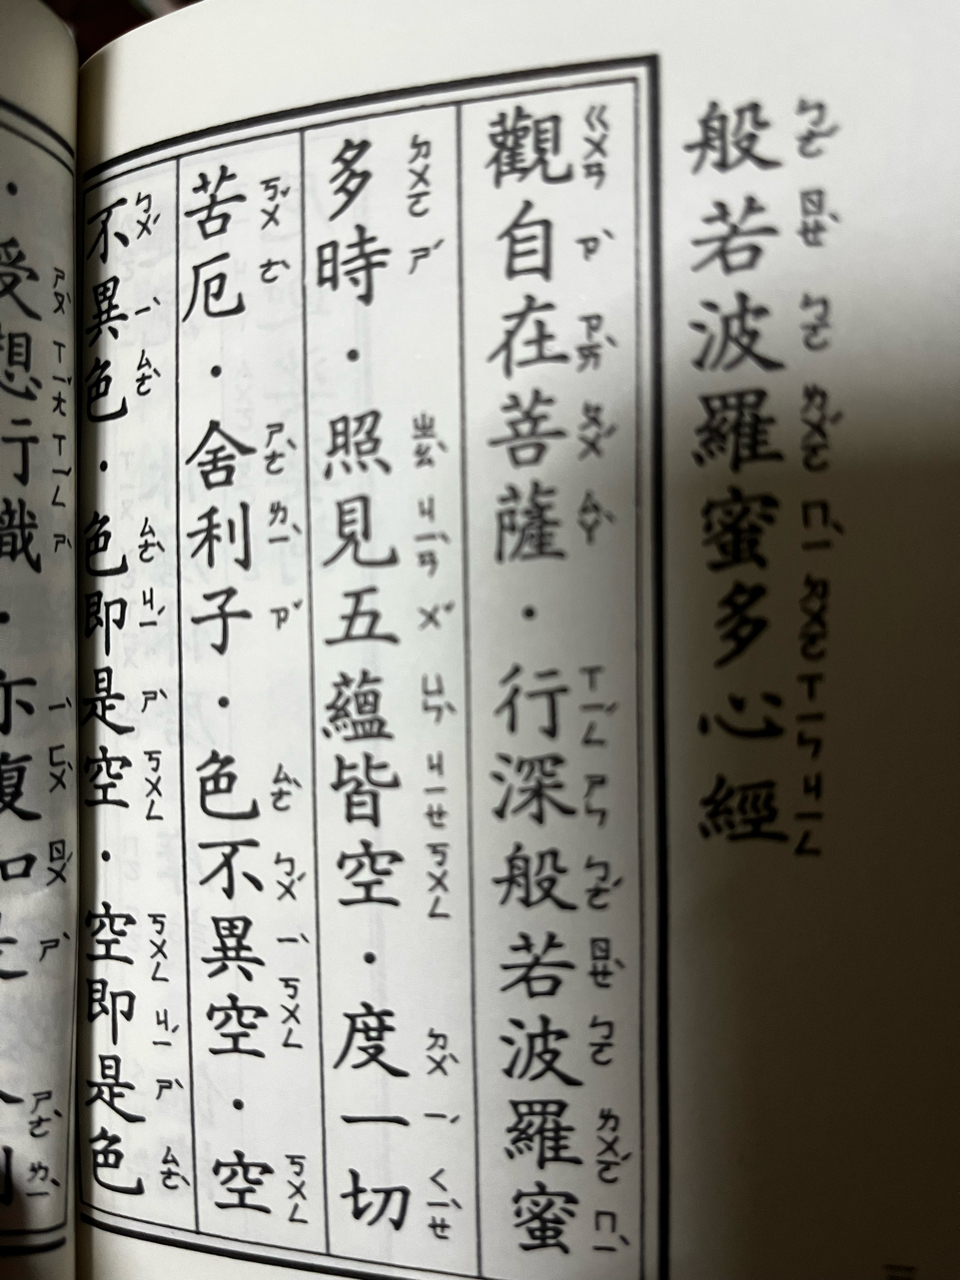 般若波羅蜜多心經
觀自在菩薩．行深般若波羅蜜
多時．照見五蘊皆空．度一切
苦厄．舍利子．色不異空．空
不異色．色即是空．空即是色
．受想行識．亦復如是